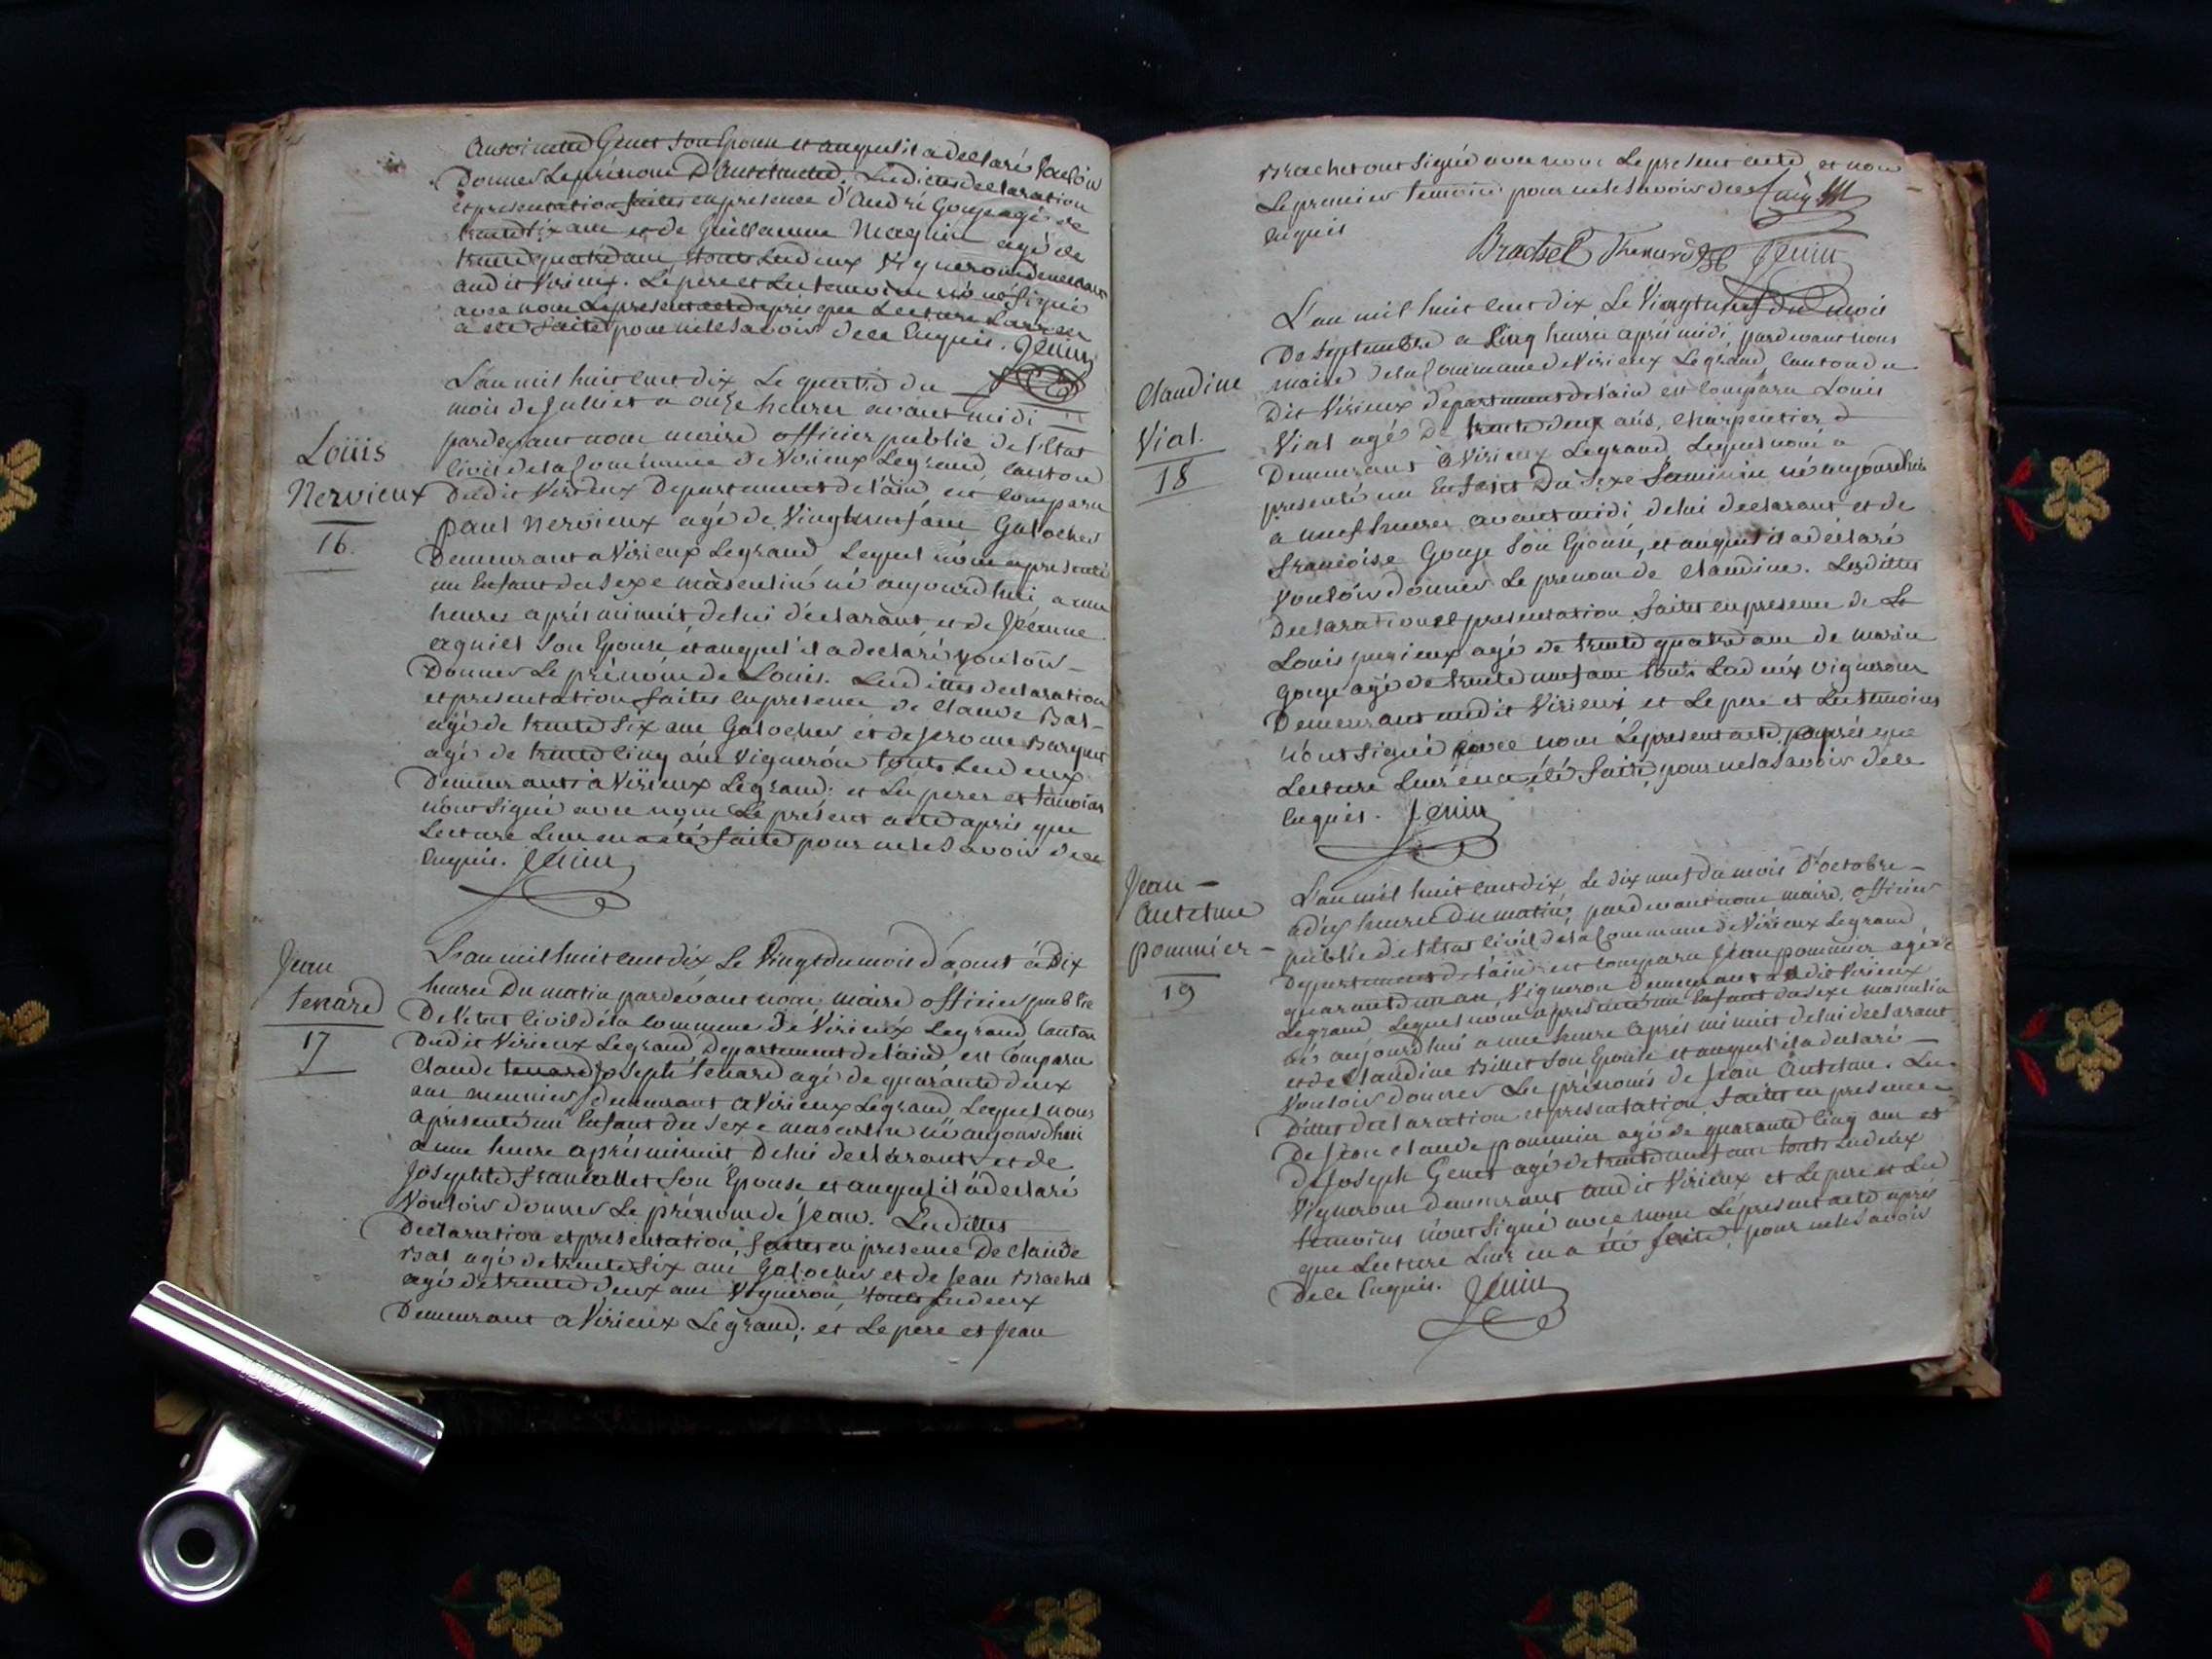 Genet son Epouse et auquel il a declaré vouloir
Donner Le prénom D'
et presentation faites en presence d'André Gouje agé de
trente six ans et de Guillaume Magnin agé de
trente quatre ans tous Les deux Vignerons demeurant
audit Virieux. Le pere et Les temoins n'ont Signé
avec nous Le present acte après que Lecture Leur en
a été faite pour ne le Savoir de ce Enquis. Jenin
L'an mil huit cent dix Le quatre du
mois de Juillet a onze heures avant midi
pardevant nous maire officier public de l'Etat
Civil de la Commune de Virieux Legrand, canton
Louis
Nervieux
16.
Dudit Virieux Departement de l'ain, est comparu
paul Nervieux agé de Vingt neuf ans Galocher
Demeurant a Virieux Legrand Lequel nous a presenté
un Enfant du Sexe masculin né aujourd'hui a une
heures après minuit de lui déclarant et de Jeanne
son Epouse et auquel il a declaré vouloir
Donner Le prénom de Louis. Lesdittes declaration
et presentation faites en presence de Claude Bal
agé de trente Six ans Galocher et de Jerome Barquet
agé de trente Cinq ans Vigneron tous Les deux
Demeurant à Virieux Legrand; et Les peres et temoins
n'ont Signé avec nous Le présent acte après que
Lecture Leur en a été faite pour ne le Savoir de ce
Enquis. Jenin
Jean
tenard
17
L'an mil huit cent dix, Le Vingt du mois d'aout à Dix
heures Du matin pardevant nous maire officier public
De l'état Civil dela Commune De Virieux Legrand, Canton
Dudit Virieux Legrand, Departement de l'ain est Comparu
Claude tenard Joseph tenard agé de quarante deux
ans meunier demeurant a Virieux Legrand, Lequel nous
a présenté un Enfant du Sexe masculin né aujourd'hui
a une heure après minuit De lui déclarant et de
Josephte Francallet son Epouse et auquel il a declaré
Vouloir donner Le prénom de Jean. Lesdittes
Declaration et presentation, faites en presence De Claude
Bal agé de trente Six ans Galocher et de Jean Brachet
agé de trente deux ans Vigneron, tous Les deux
Demeurant a Virieux Legrand; et Le pere et Jean
Brachet ont Signé avec nous Le present acte et non
Le premier temoin pour ne le Savoir de ce
Enquis
Brachet Thenard Jenin
Claudine
Vial.
18
L'an mil huit cent dix, Le Vingt neuf du mois
De Septembre a Cinq heures après midi, pardevant nous
maire dela Commune de Virieux Legrand, Canton du
Dit Virieux departement de l'ain est Comparu Louis
Vial agé De trente deux ans, Charpentier
Demeurant à Virieux Legrand, Lequel nous a
presenté un Enfant Du Sexe feminin né aujourd'hui
a neuf heures avant midi de lui declarant et de
francoise Gouje son Epouse, et auquel il a déclaré
Vouloir donner Le prenom de Claudine. Lesdittes
Declaration et presentation faites en presence de
Louis agé de trente quatre ans de marin
gouje agé de trente neuf ans tous Les deux vignerons
Demeurant audit Virieux et Le pere et Les temoins
n'ont Signé avec nous Le present acte après que
Lecture Leur en a été faite, pour ne le Savoir de ce
Enquis. Jenin
Jean
antelme
pommier
19
L'an mil huit cent dix, Le dix neuf du mois d'octobre
a dix heures Du matin; pardevant nous maire, officier
public de l'Etat Civil dela Commune de Virieux Legrand
Departement de l'ain est Comparu Jean pommier agé de
quarante un an, Vigneron Demeurant audit Virieux
Legrand, Lequel nous a presenté un Enfant du Sexe masculin
né aujourd'hui a une heure après minuit de lui declarant
et de Claudine Billet son Epouse et auquel il a declaré
Vouloir donner Les prénoms de Jean Antelme. Les
Dittes declaration et presentation faites en presence
De Jean Claude pommier agé de quarante Cinq ans et
de Joseph Genet agé de trente neuf ans tous Les deux
Vignerons demeurant audit Virieux et Le pere et Les
temoins n'ont Signé avec nous Le present acte après
que Lecture Leur en a été faite, pour ne le Savoir
De ce Enquis. Jenin